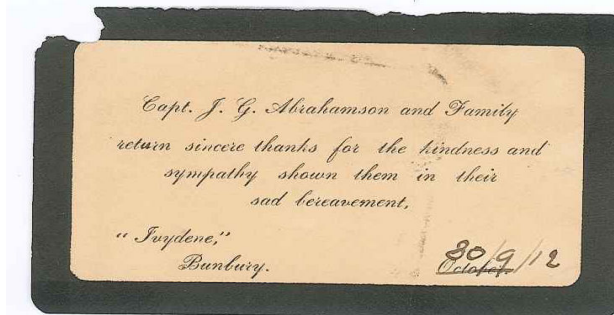 Capt. J. G. Abrahamson and Family
return sincere thanks for the kindness and
sympathy shown them in their
sad bereavement,
"Ivydene,"
Bunbury.
30/9/12
October.